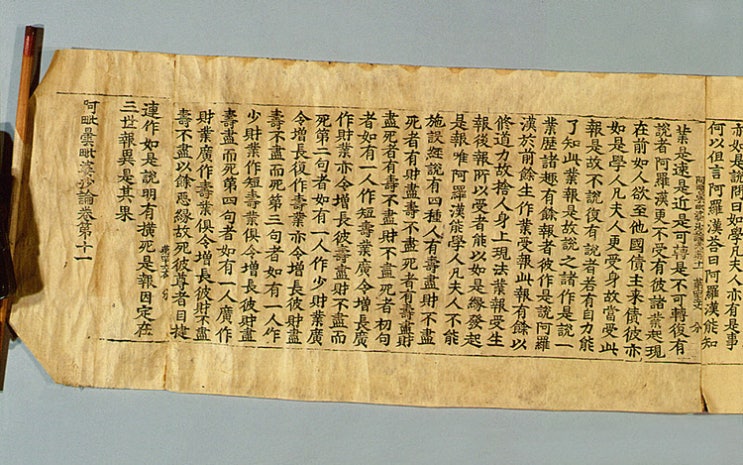 亦如是說問曰如學凡夫人亦有是事
何以但言阿羅漢荅曰阿羅漢能知
業是遠是近是可轉是不可轉復有
說者阿羅漢更不受有彼諸業起現
在前如人欲至他國債主來債彼亦
如是學人凡夫人更受身故當受此
報是故不說復有說者若有自力能
了知此業報是故說之諸作是說一
業歷諸趣有餘報者彼作是說阿羅
漢於前餘生作業受報此報有餘以
修道力故捨人身上現法業報受生
報後報所以受者能以如是緣發起
是報唯阿羅漢能學人凡夫人不能
施設經說有四種人有壽盡財不盡
死者有財盡壽不盡死者有壽盡財
盡死者有壽不盡財不盡死者初句
者如有一人作短壽業廣令增長廣
作財業亦令增長彼壽盡財不盡而
死第二句者如有一人作少財業廣
令增長復作壽業亦令增長彼財盡
壽不盡而死第三句者如有一人作
少財業作短壽業俱令增長彼財盡
壽盡而死第四句者如有一人廣作
財業廣作壽業俱令增長彼財不盡
壽不盡以餘惡緣故死彼尊者目揵
連作如是說明有橫死是報因定在
三世報異是其果
阿毗曇毗婆沙論卷第十一